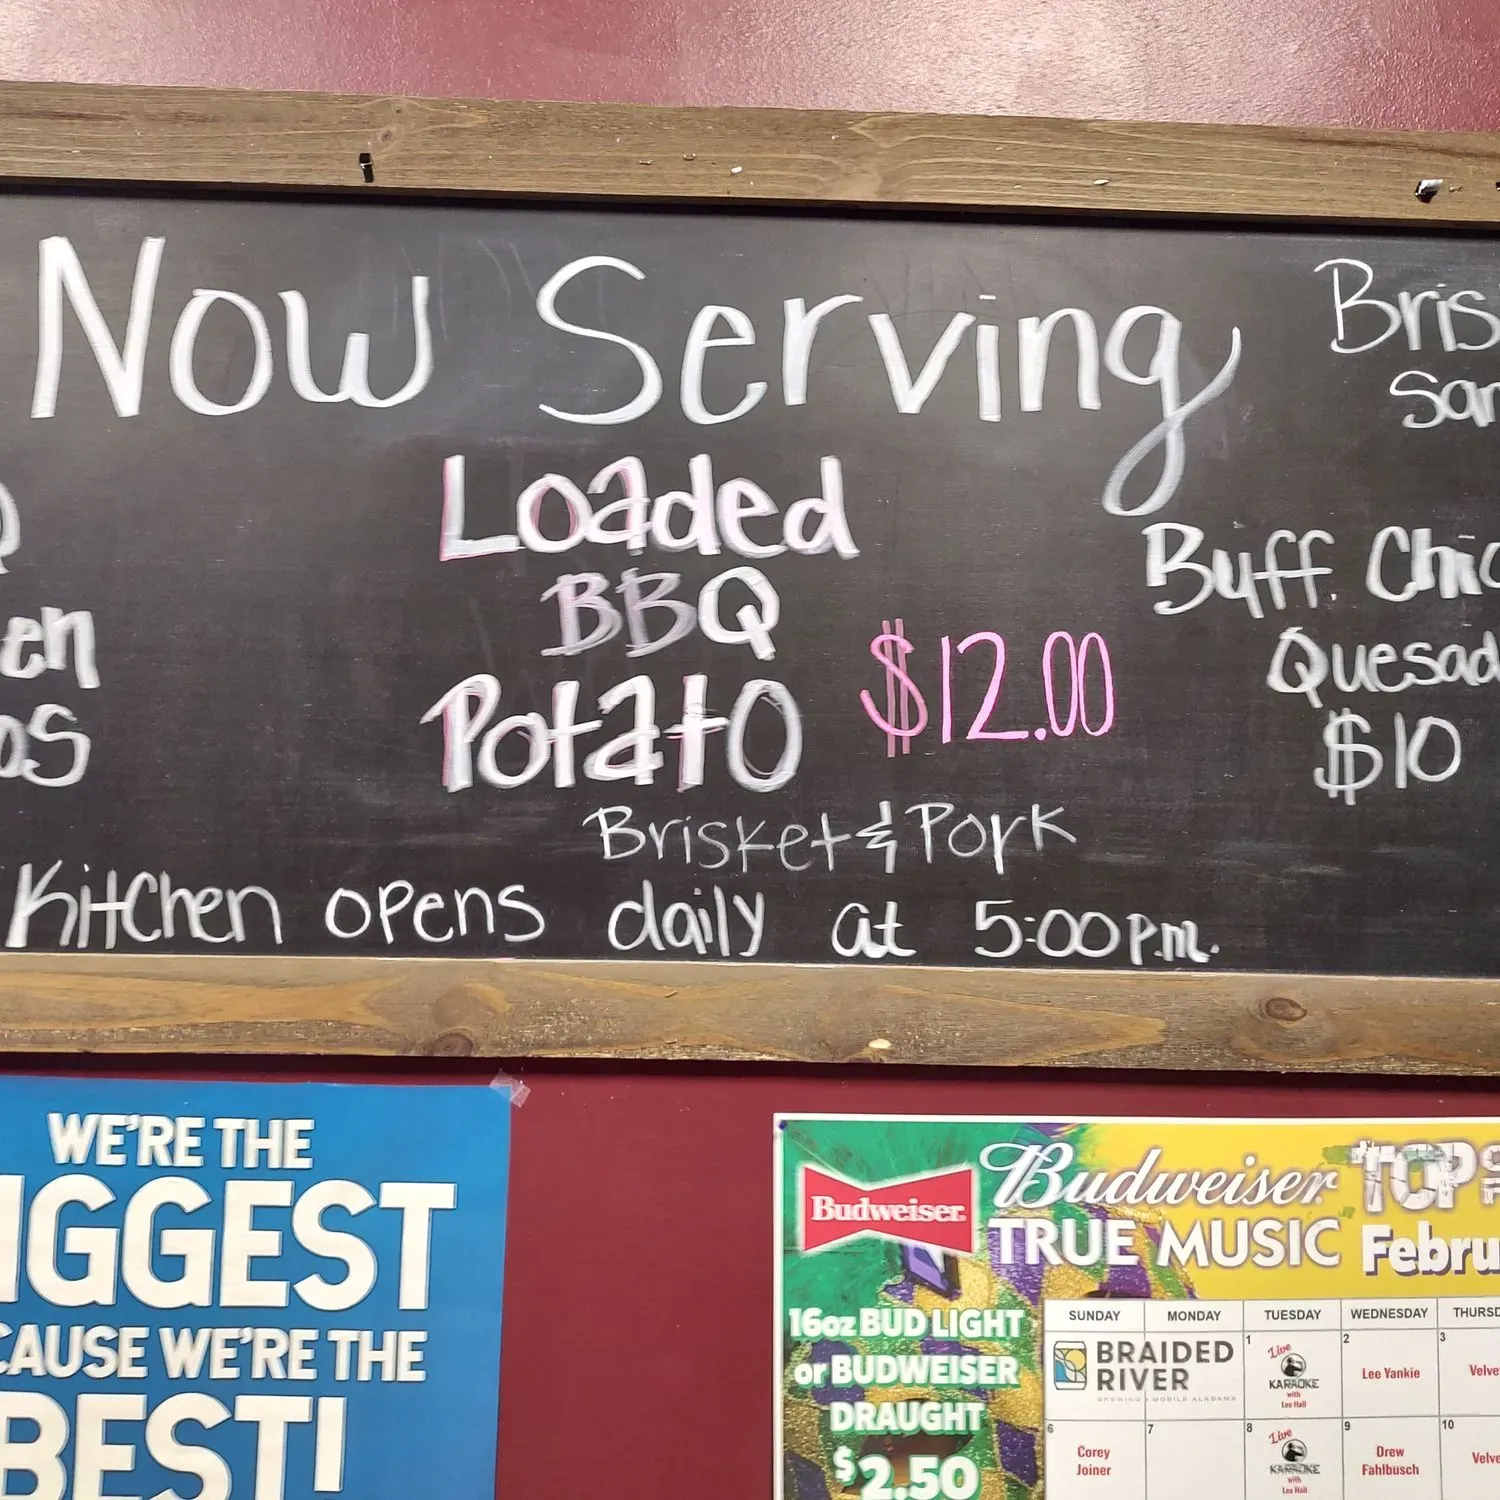 Now Serving
Loaded
BBQ
Potato $12.00
Brisket & Pork
Kitchen opens daily at 5:00 p.m.
Q
en
os
Bris
San
Buff Chic
Quesad
$10
WE'RE THE
IGGEST
CAUSE WE'RE THE
BEST!
Budweiser
Budweiser TOP
TRUE MUSIC Febru
16oz BUD LIGHT
or BUDWEISER
DRAUGHT
$2.50
SUNDAY MONDAY TUESDAY WEDNESDAY THURSD
BRAIDED
RIVER
BREWING MOBILE ALABAMA
1
Live
KARAOKE
with
Les Hall
2
Lee Yankie
3
Velve
6
Corey
Joiner
7
8
Live
KARAOKE
with
Les Hall
9
Drew
Fahlbusch
10
Velve